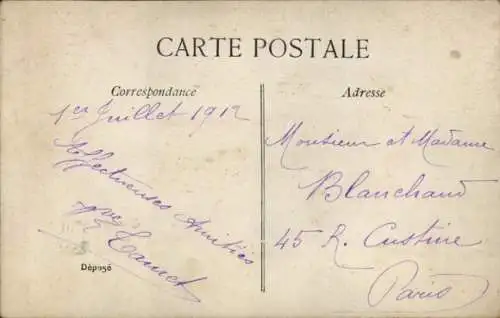 CARTE POSTALE
Correspondance
1er Juillet 1912
Affectueuses Amitiés
Déposé
Adresse
Monsieur et Madame
Blanchaud
45 R. Custine
Paris